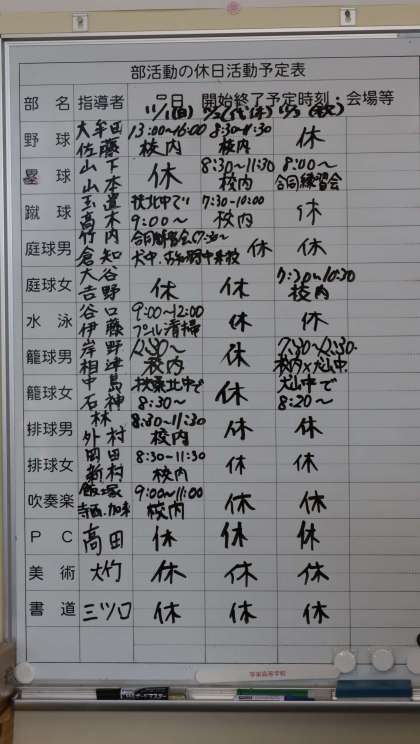 部活動の休日活動予定表
部 名 指導者 月日 開始終了予定時刻・会場等
11/1(日)
野 球 大牟田 佐藤 13:00~16:00 校内 8:30~11:30 校内 休
塁 球 山下 山本 休 8:30~11:30 校内 8:00~ 合同練習会
蹴 球 高木 扶北中で 9:00~ 7:30-10:00 校内 休
庭球男 竹内 倉知 休 休
庭球女 大谷 吉野 休 休 7:30~10:30 校内
水 泳 谷口 伊藤 9:00~12:00 プール清掃 休 休
籠球男 岸野 相津 校内 休 7:30~12:30
籠球女 中島 石神 扶桑北中で 8:30~ 休 犬山中で 8:20~
排球男 林 外村 8:30~11:30 校内 休 休
排球女 岡田 新村 8:30-11:30 校内 休 休
吹奏楽 飯塚 9:00~11:00 校内 休 休
PC 高田 休 休 休
美 術 大竹 休 休 休
書 道 三ツ口 休 休 休